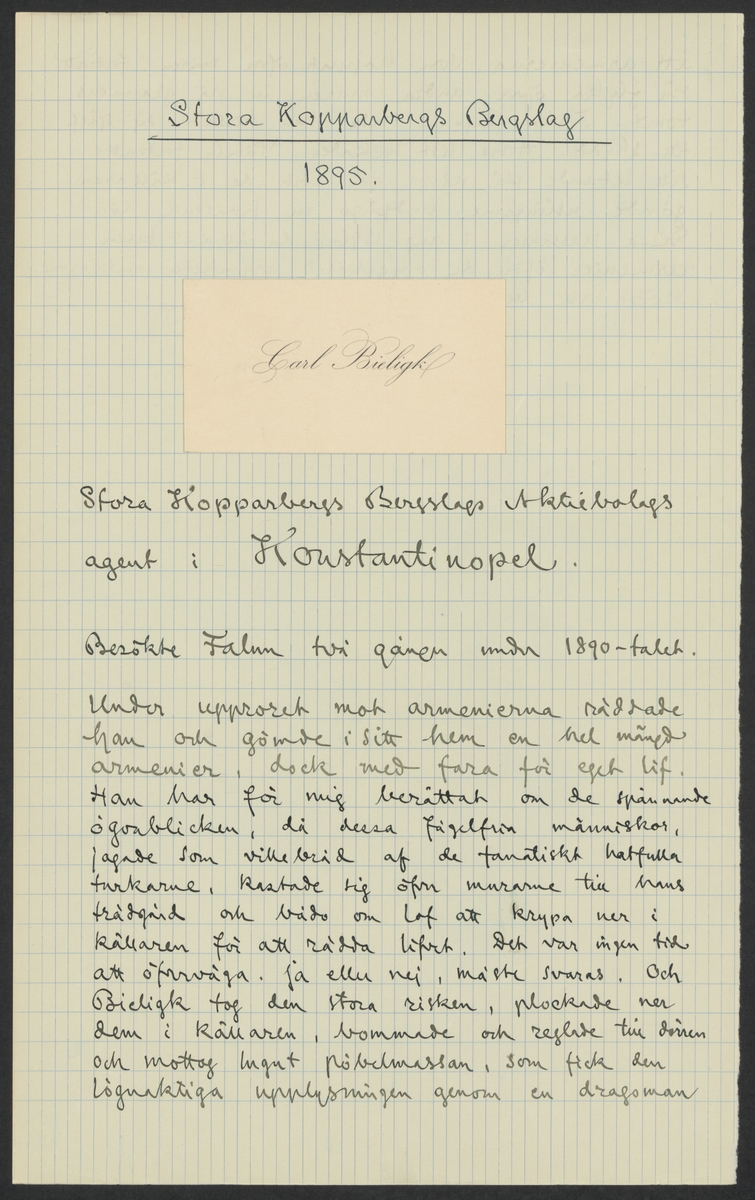 Stora Kopparbergs Bergslag
1895.
Carl Bieligk
Stora Kopparbergs Bergslags Aktiebolags
agent i Konstantinopel.
Besökte Falun två gånger under 1890-talet.
Under upproret mot armenierna räddade
han och gömde i sitt hem en hel mängd
armenier, dock med fara för eget lif.
Han har för mig berättat om de spännande
ögonblicken, då dessa fågelfria människor,
jagade som villebråd af de fanatiskt hatfulla
turkarne, kastade sig öfver murarne till hans
trädgård och bådo om lof att krypa ner i
källaren för att rädda lifvet. Det var ingen tid
att öfverväga. Ja eller nej, måste svaras. Och
Bieligk tog den stora risken, plockade ner
dem i källaren, bommade och reglade till dörren
och mottog lugnt pöbelmassan, som fick den
lögnaktiga upplysningen genom en dragoman